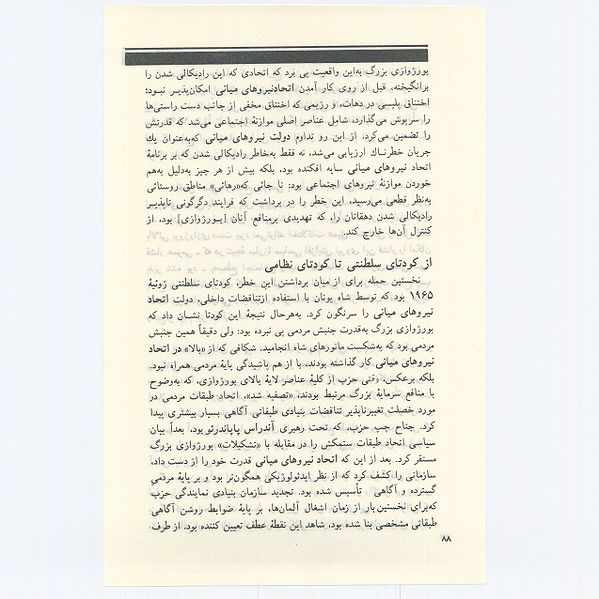 بورژوازی بزرگ به‌این واقعیت پی برد که اتحادی که این رادیکالی شدن را
برانگیخته، قبل از روی کار آمدن اتحادنیروهای میانی امکان‌پذیر نبود:
اختناق پلیسی در دهات، و رژیمی که اختناق مخفی از جانب دست راستی‌ها
را سرپوش می‌گذارد، شامل عناصر اصلی موازنهٔ اجتماعی می‌شد که قدرتش
را تضمین می‌کرد. از این رو تداوم دولت نیروهای میانی که‌به‌عنوان یك
جریان خطرنـاك ارزیابی می‌شد، نه فقط به‌خاطر رادیکالی شدن که بر برنامهٔ
اتحاد نیروهای میانی سایه افکنده بود، بلکه بیش از هر چیز به‌دلیل به‌هم
خوردن موازنهٔ نیروهای اجتماعی بود: تا جائی که«رهائی» مناطق روستائی
به‌نظر قطعی می‌رسید، این خطر را در برداشت که فرایند دگرگونی ناپذیـر
رادیکالی شدن دهقانان را، که تهدیدی برمنافع آنان [بـورژوازی] بود، از
کنترل آن‌ها خارج کند.
از کودتای سلطنتی تا کودتای نظامی
نخستین حمله برای از میان برداشتن این خطر، کودتای سلطنتی ژوئیهٔ
۱۹۶۵ بود که توسط شاه یونان با استفاده ازتناقضات داخلی، دولت اتحاد
نیروهای میانی را سرنگون کرد. به‌هرحال نتیجهٔ این کودتا نشـان داد که
بورژوازی بزرگ به‌قدرت جنبش مردمی پی نبرده بود: ولی دقیقاً همین جنبش
مردمی بود که به‌شکست مانورهای شاه انجامید. شکافی که از «بالا» در اتحاد
نیروهای میانی کار گذاشته بودند، با از هم پاشیدگی پایهٔ مردمی همراه نبود.
بلکه برعکس، وقتی حزب از کلیهٔ عناصر لایهٔ بالای بورژوازی، که به‌وضوح
با منافع سرمایهٔ بزرگ مرتبط بودند، «تصفیه شد»، اتحاد طبقات مردمی در
مورد خصلت تغییرناپذیر تناقضات بنیادی طبقاتی آگاهی بسیار بیشتری پیدا
کرد. جناح چپ حزب، که تحت رهبری آندراس پاپاندرئو بود، بعداً بیان
سیاسی اتحاد طبقات ستمکش را در مقابله با «تشکیلاتِ» بورژوازی بزرگ
مستقر کرد. بعد از این که اتحاد نیروهای میانی قدرت خود را از دست داد،
سازمانی را کشف کرد که از نظر ایدئولوژیکی همگون‌تر بود و بر پایهٔ مردمی
گسترده و آگاهی تأسیس شده بود. تجدید سازمان بنیادی نمایندگی حزب
که‌برای نخستین‌بار از زمان اشغال آلمان‌ها، بر پایهٔ ضوابط روشن آگاهی
طبقاتی مشخصی بنا شده بود، شاهد این نقطهٔ عطف تعیین کننده بود. از طرف
۸۸